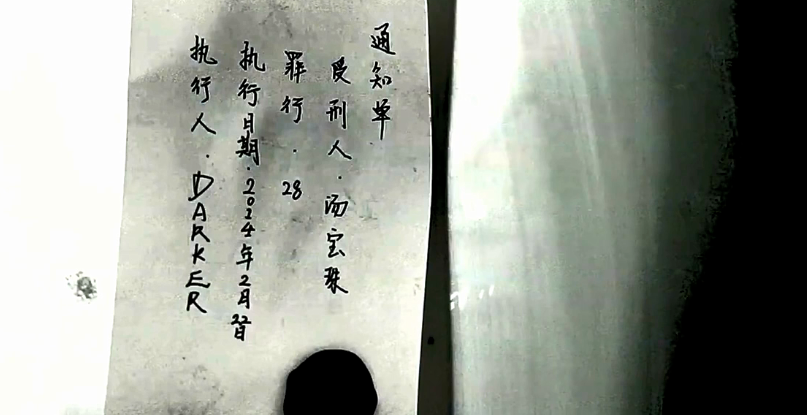 通知单
受刑人.汤宝珠
罪行.28
执行日期.2014年2月22日
执行人.DARKER